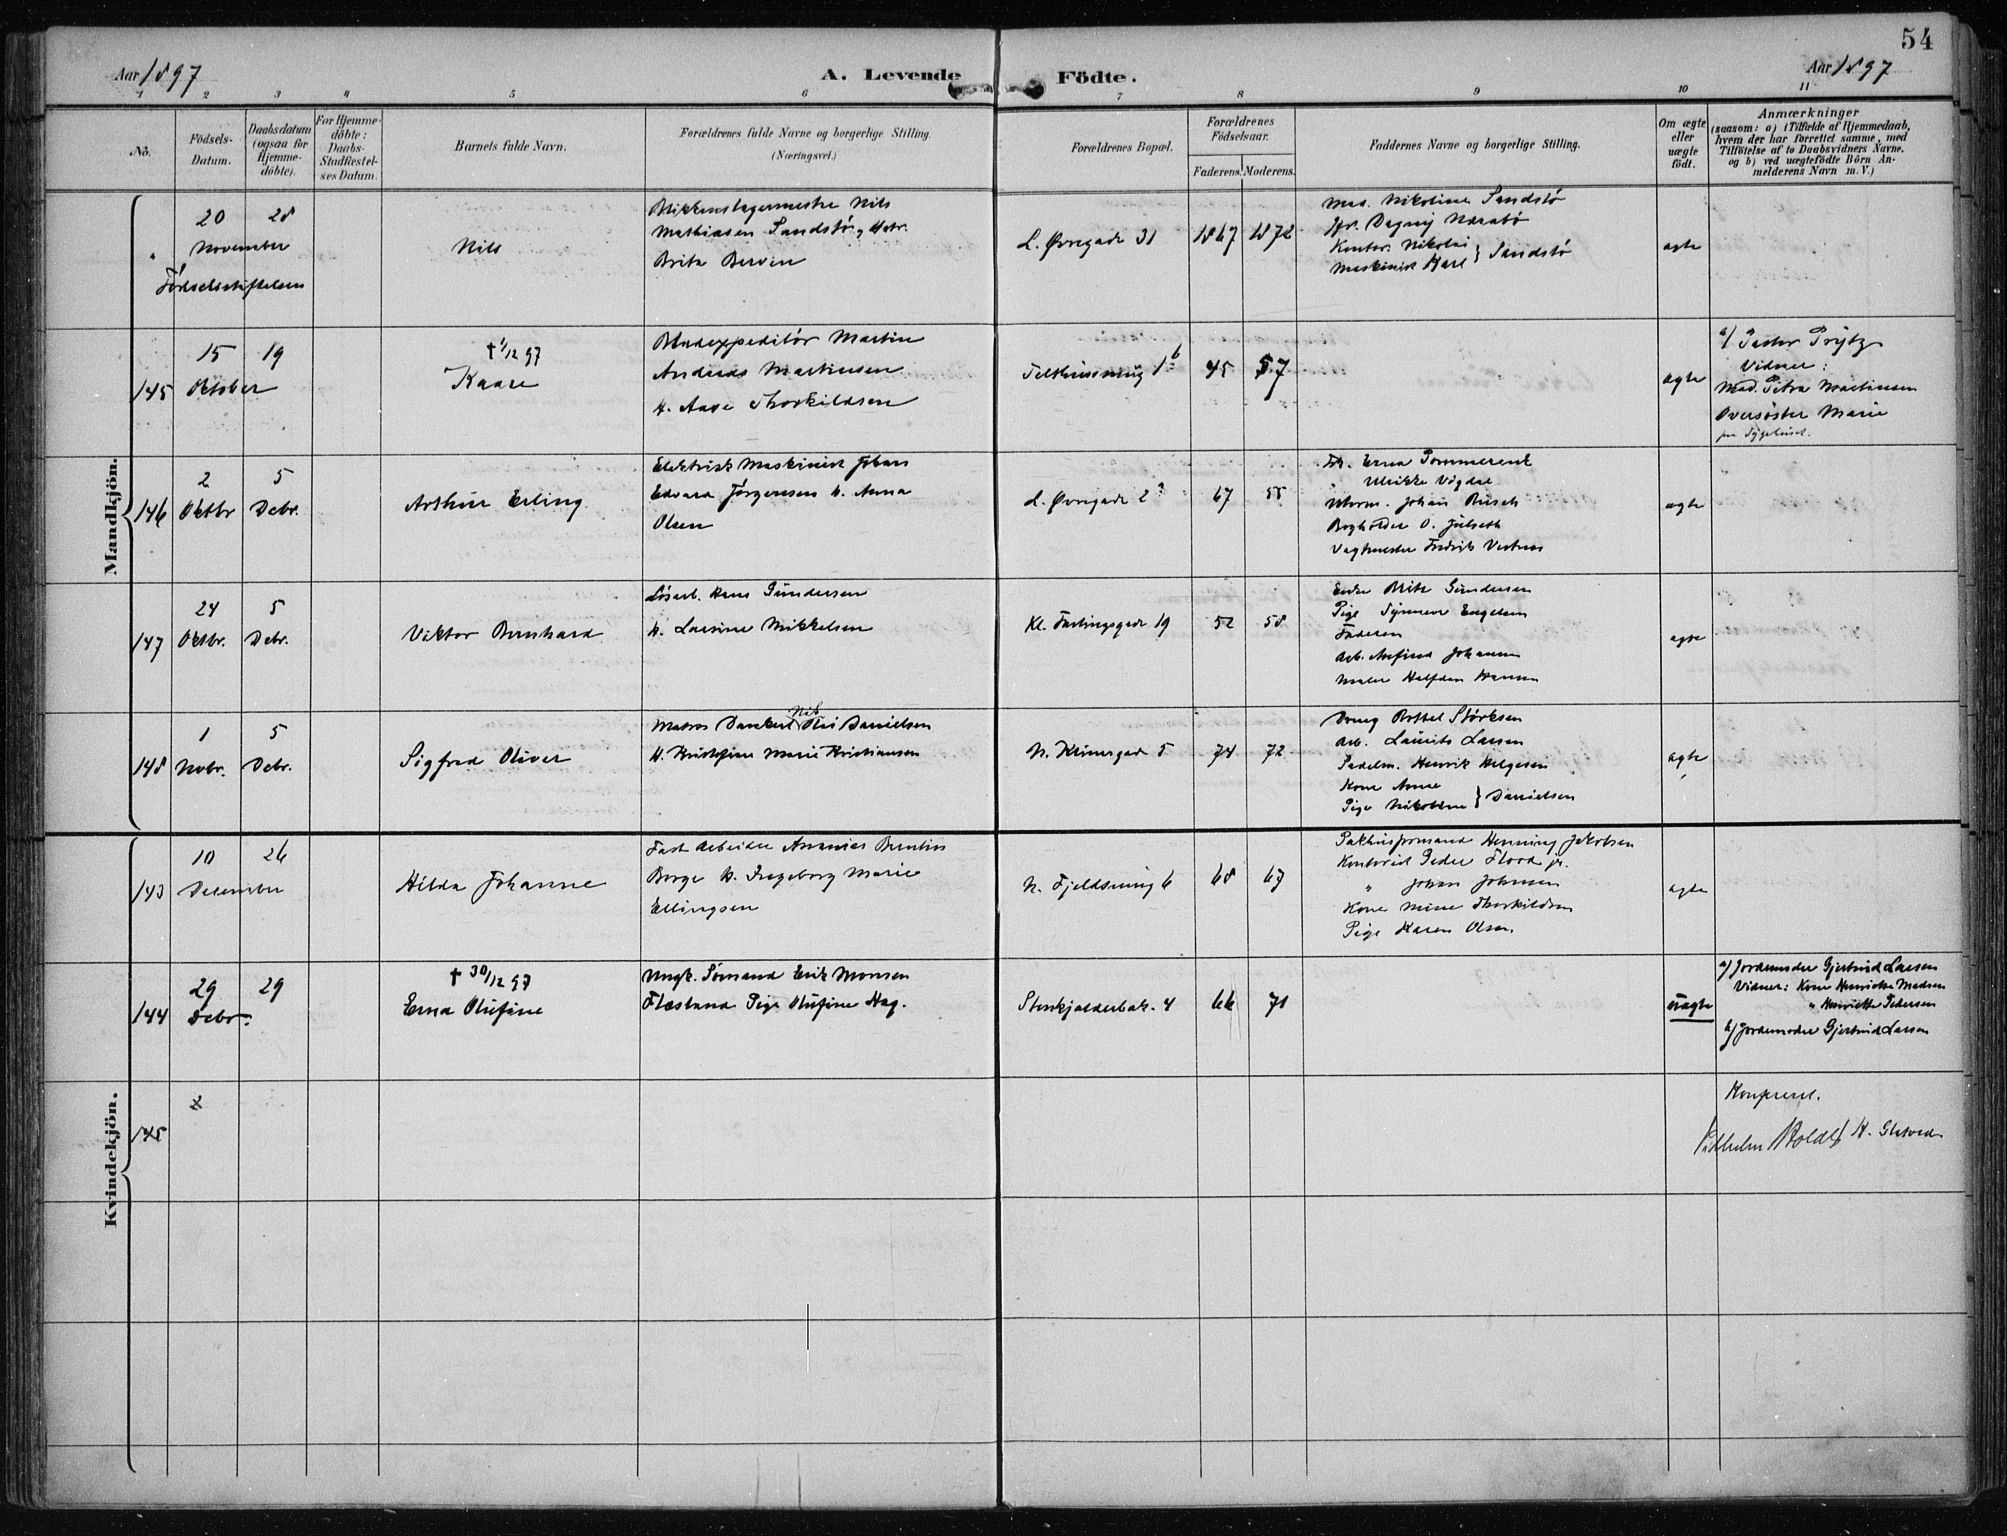 54
Aar 1897
A. Levende Födte.
Aar 1897
1 2 3 4 5 6 7 8 9 10 11
No.
Födsels-Datum.
Daabsdatum (ogsaa for Hjemme-döbte).
For Hjemme-döbte: Daabs-Stadfæstel-ses Datum.
Barnets fulde Navn.
Forældrenes fulde Navne og borgerlige Stilling.
(Næringsvei.)
Forældrenes Bopæl.
Forældrenes Födselsaar.
Faderens. Moderens.
Faddernes Navne og borgerlige Stilling.
Om ægte eller uægte födt.
Anmærkninger
(saasom: a) i Tilfælde af Hjemmedaab,
hvem der har forrettet samme, med
Tilföielse af to Daabsvidners Navne,
og b) ved uægtefödte Börn An-
melderens Navn m. V.)
Mandkjön.
"
20 28
November
Fødselsstiftelsen
Nils
Blikkenslagermester Nils
Mathiasen Sandstø, Hstr.
Brita Berven
L. Øvregade 31
1867 1872
Mad. Nikoline Sandstø
Frk. Dagny Nærabø
Kontor. Nikolai
Maskinist Karl } Sandstø
ægte
145
15 19
Oktober
† 1/12 97
Kaare
Budexpeditør Martin
Andreas Martinsen
H. Aase Thorkildsen
Telthussmug 1b
45 57
ægte
a/ Pastor Prytz
Vidner:
Mad. Petra Martinsen
Oversøster Marie
paa Sygehuset.
146
2 5
Oktbr Debr.
Arthur Erling
Elektrisk Maskinist Johan
Edvard Jørgensen H. Anna
Olsen
L. Øvregade 2a
67 55
Frk. Erna Pommerenk
" Ulrikke Vigdal
Uhrm. Johan Busch
Bogholder O. Julseth
Vagtmester Fredrik Vestnes
ægte
147
24 5
Oktbr. Debr.
Viktor Bernhard
Løsarb. Hans Gundersen
H. Laurine Mikkelsen
Kl. Fastingsgade 19
52 58
Enke Brita Gundersen
Pige Synneve Engelsen
Faderen
Arb. Anfind Johannsen
Maler Halfdan Hansen
ægte
148
1 5
Nobr. Debr.
Sigfred Oliver
Matros Dankert Nils Olai Danielsen
H. Kristofine Marie Kristiansen
N. Korsgade 5
74 72
Arb. Laurits Larsen
Sadelm. Henrik Helgesen
Kone Anne
Pige Nikoline } Danielsen
ægte
Kvindekjön.
143
10 26
December
Hilda Johanne
Fast Arbeider Ananias Berntin
Berge H. Ingeborg Marie
Ellingsen
N. Fjeldsmug 6
68 67
Pakhusformand Henning Jakobsen
Kontorist Peder Flood jr.
" Johan Johnsen
Kone Mina Thorkildsen
Pige Karen Olsen.
ægte
144
29 29
Debr.
† 30/12 97
Erna Olufine
Ungk. Sømand Erik Monsen
Flæsland Pige Olufine Hag.
Stenkjælderbak. 4
66 71
uægte
a/ Jordemoder Gjertrud Larsen
Vidner: Kone Henrikke Madsen
" Henriette Pedersen
b/ Jordemoder Gjertrud Larsen
145
Konfereret.
Vilhelm Holdt